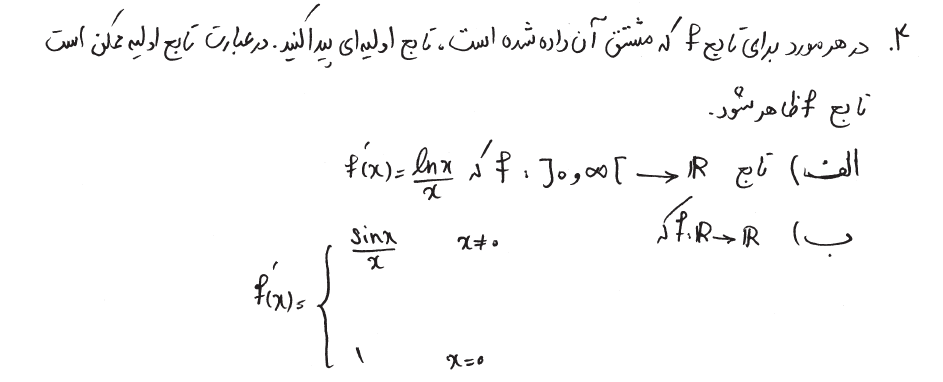 ۴. در هر مورد برای تابع f که مشتق آن داده شده است، تابع اولیه‌ای پیدا کنید. در عبارت تابع اولیه ممکن است
تابع f ظاهر شود.
الف) تابع f : ]۰,∞[ → ℝ که f'(x) = ln x / x
ب) f : ℝ → ℝ که
f'(x) = { sin x / x    x ≠ ۰
۱    x = ۰